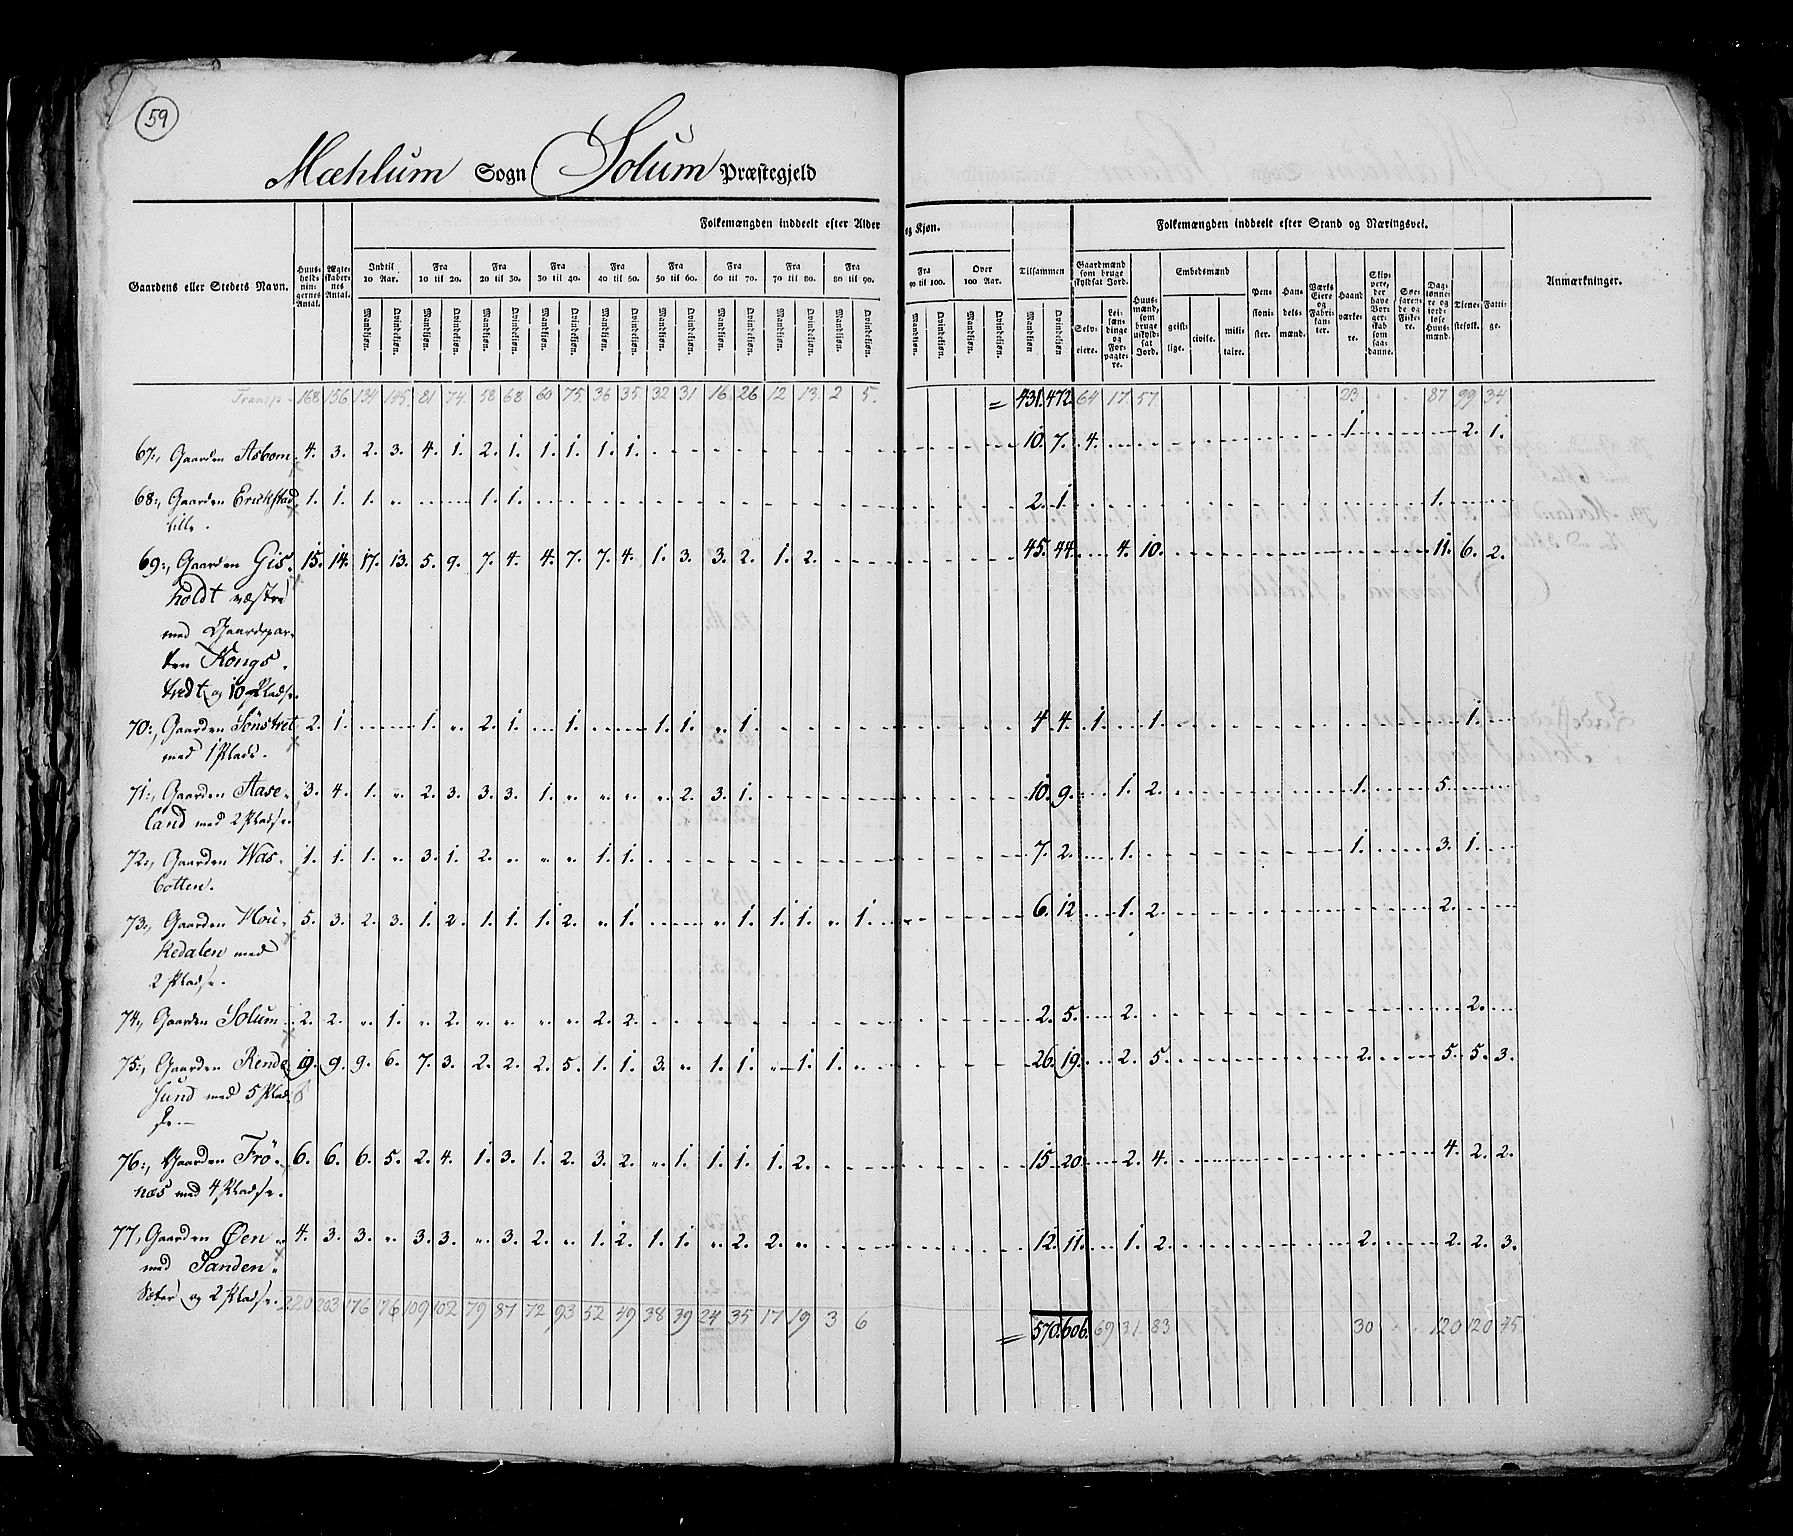 59
Mæhlum Sogn Solum Præstegjeld
Folkemængden inddeelt efter Alder og Kjøn.
Folkemængden inddeelt efter Stand og Næringsvei.
Gaardens eller Stedets Navn.
Huus-holdnin-gernes Antal.
Ægte-skaber-nes Antal.
Indtil 10 Aar.
Fra 10 til 20.
Fra 20 til 30.
Fra 30 til 40.
Fra 40 til 50.
Fra 50 til 60.
Fra 60 til 70.
Fra 70 til 80.
Fra 80 til 90.
Fra 90 til 100.
Over 100 Aar.
Tilsammen
Mandkjøn. Qvindekjøn.
Gaardmænd som bruge skyldsat Jord.
Selv-eiere.
Lei-læn-dinge og For-pagte-re.
Huus-mænd, som bruge uskyld-sat Jord.
Embedsmænd
geist-lige.
civile.
mili-taire.
Pen-sioni-ster.
Han-dels-mænd.
Værks Eiere og Fabri-kan-ter.
Haand værke-re.
Skip-pere, der have Bor-ger-skab som saa-danne.
Søe-faren-de og Fiske-re.
Dag-lønne-re og jord-løse Huus-mænd.
Tiene-stefolk.
Fatti-ge.
Anmærkninger.
Transp. 168 156 134 145. 81 74. 58 68 60 75. 36 35. 32 31 16. 26 12 13. 2 5. = 431. 472. 64 17. 57 23. 87 99 34
67., Gaarden Asbom. 4. 3. 2. 3. 4. 1. 2. 1. 1. 1. 1. 1. 10. 7. 4. 1. 2. 1.
68., Gaarden Erickstad 1. 1. 1. " 1. 1. 2. 1. 1.
lille.
69., Gaarden Gis- 15. 14. 17. 13. 5. 9. 7. 4. 4. 7. 7. 4. 1. 3. 3. 2. 1. 2. 45. 44. 4. 10. 11. 6. 2.
holdt væstre
med Gaardspar-
ten Kongs-
tredt og 10 Pladse.
70., Gaarden Sönstret 2. 1. 1. " 2. 1. 1. 1. 1. " 1. 4 4. 1. 1. 1.
med 1 Plads.
71., Gaarden Aase- 3. 4. 1. " 2. 3. 3. 3. 1. " " " " 2. 3. 1. 10. 9. 1. 2. 1. 5.
land med 2 Pladse.
72., Gaarden Was- 1. 1. 1. " 3. 1. 2. " " " 1. 1. 7. 2. 1. 1. 3. 1.
botten.
73., Gaarden Mou- 5. 3. 2. 3. 1. 2. 1. 1. 1. 2. " 1. " 1. 1. 1. " 1. 6. 12 1. 2. 2.
kedalen med
2 Pladse.
74., Gaarden Solum 2. 2. " 1. " 2. " " " " 2. 2. 2. 5. 2. 2.
75., Gaarden Rende 19. 9. 9. 6. 7. 3. 2. 2. 2. 5. 1. 1. 3. " 1. 1. " 1. 1. " 26. 19. 2. 5. 2. 5. 5. 3.
sund med 5 Plad-
se.
76., Gaarden Frö- 6. 6. 6. 5. 2. 4. 1. 3. 1. 2. 3. 2. " 1. 1. 1. 1. 2. 15. 20 2. 4. 4. 2. 2.
næs med 4 Pladse.
77., Gaarden Øen 4. 3. 3. " 3. 3. " 3. 2. " 1. 2. 1. 1. " 2. 2. " 12. 11. 1. 2. 2. 2. 2. 3.
med Sanden
Sæter og 2 Pladse.
220 203 176 176 109 102 79 87 72 93 52 49 38 39 24 35 17 19 3 6 = 570. 606. 69 31. 83 30 120 120 45